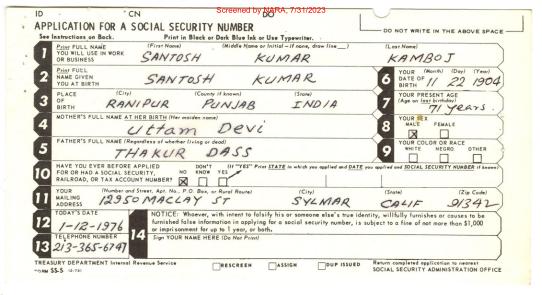 Screened by NARA, 7/31/2023
ID CN DO
APPLICATION FOR A SOCIAL SECURITY NUMBER
DO NOT WRITE IN THE ABOVE SPACE
See Instructions on Back. Print in Black or Dark Blue Ink or Use Typewriter.
1 Print FULL NAME YOU WILL USE IN WORK OR BUSINESS (First Name) (Middle Name or Initial—if none, draw line) (Last Name)
SANTOSH KUMAR KAMBOJ
2 Print FULL NAME GIVEN YOU AT BIRTH
SANTOSH KUMAR
6 YOUR DATE OF BIRTH (Month) (Day) (Year)
11 22 1904
3 PLACE OF BIRTH (City) (County if known) (State)
RANIPUR PUNJAB INDIA
7 YOUR PRESENT AGE (Age on last birthday)
71 years.
4 MOTHER'S FULL NAME AT HER BIRTH (Her maiden name)
Uttam Devi
8 YOUR SEX
MALE FEMALE
X
5 FATHER'S FULL NAME (Regardless of whether living or dead)
THAKUR DASS
9 YOUR COLOR OR RACE
WHITE NEGRO OTHER
10 HAVE YOU EVER BEFORE APPLIED FOR OR HAD A SOCIAL SECURITY, RAILROAD, OR TAX ACCOUNT NUMBER?
NO DON'T KNOW YES
X
(If "YES" Print STATE in which you applied and DATE you applied and SOCIAL SECURITY NUMBER if known)
11 YOUR MAILING ADDRESS (Number and Street, Apt. No., P.O. Box, or Rural Route) (City) (State) (Zip Code)
12950 MACLAY ST SYLMAR CALIF 91342
12 TODAY'S DATE
1-12-1976
14 NOTICE: Whoever, with intent to falsify his or someone else's true identity, willfully furnishes or causes to be
furnished false information in applying for a social security number, is subject to a fine of not more than $1,000
or imprisonment for up to 1 year, or both.
13 TELEPHONE NUMBER
213-365-6797
Sign YOUR NAME HERE (Do Not Print)
TREASURY DEPARTMENT Internal Revenue Service
FORM SS-5
RESCREEN ASSIGN DUP ISSUED
Return completed application to nearest
SOCIAL SECURITY ADMINISTRATION OFFICE